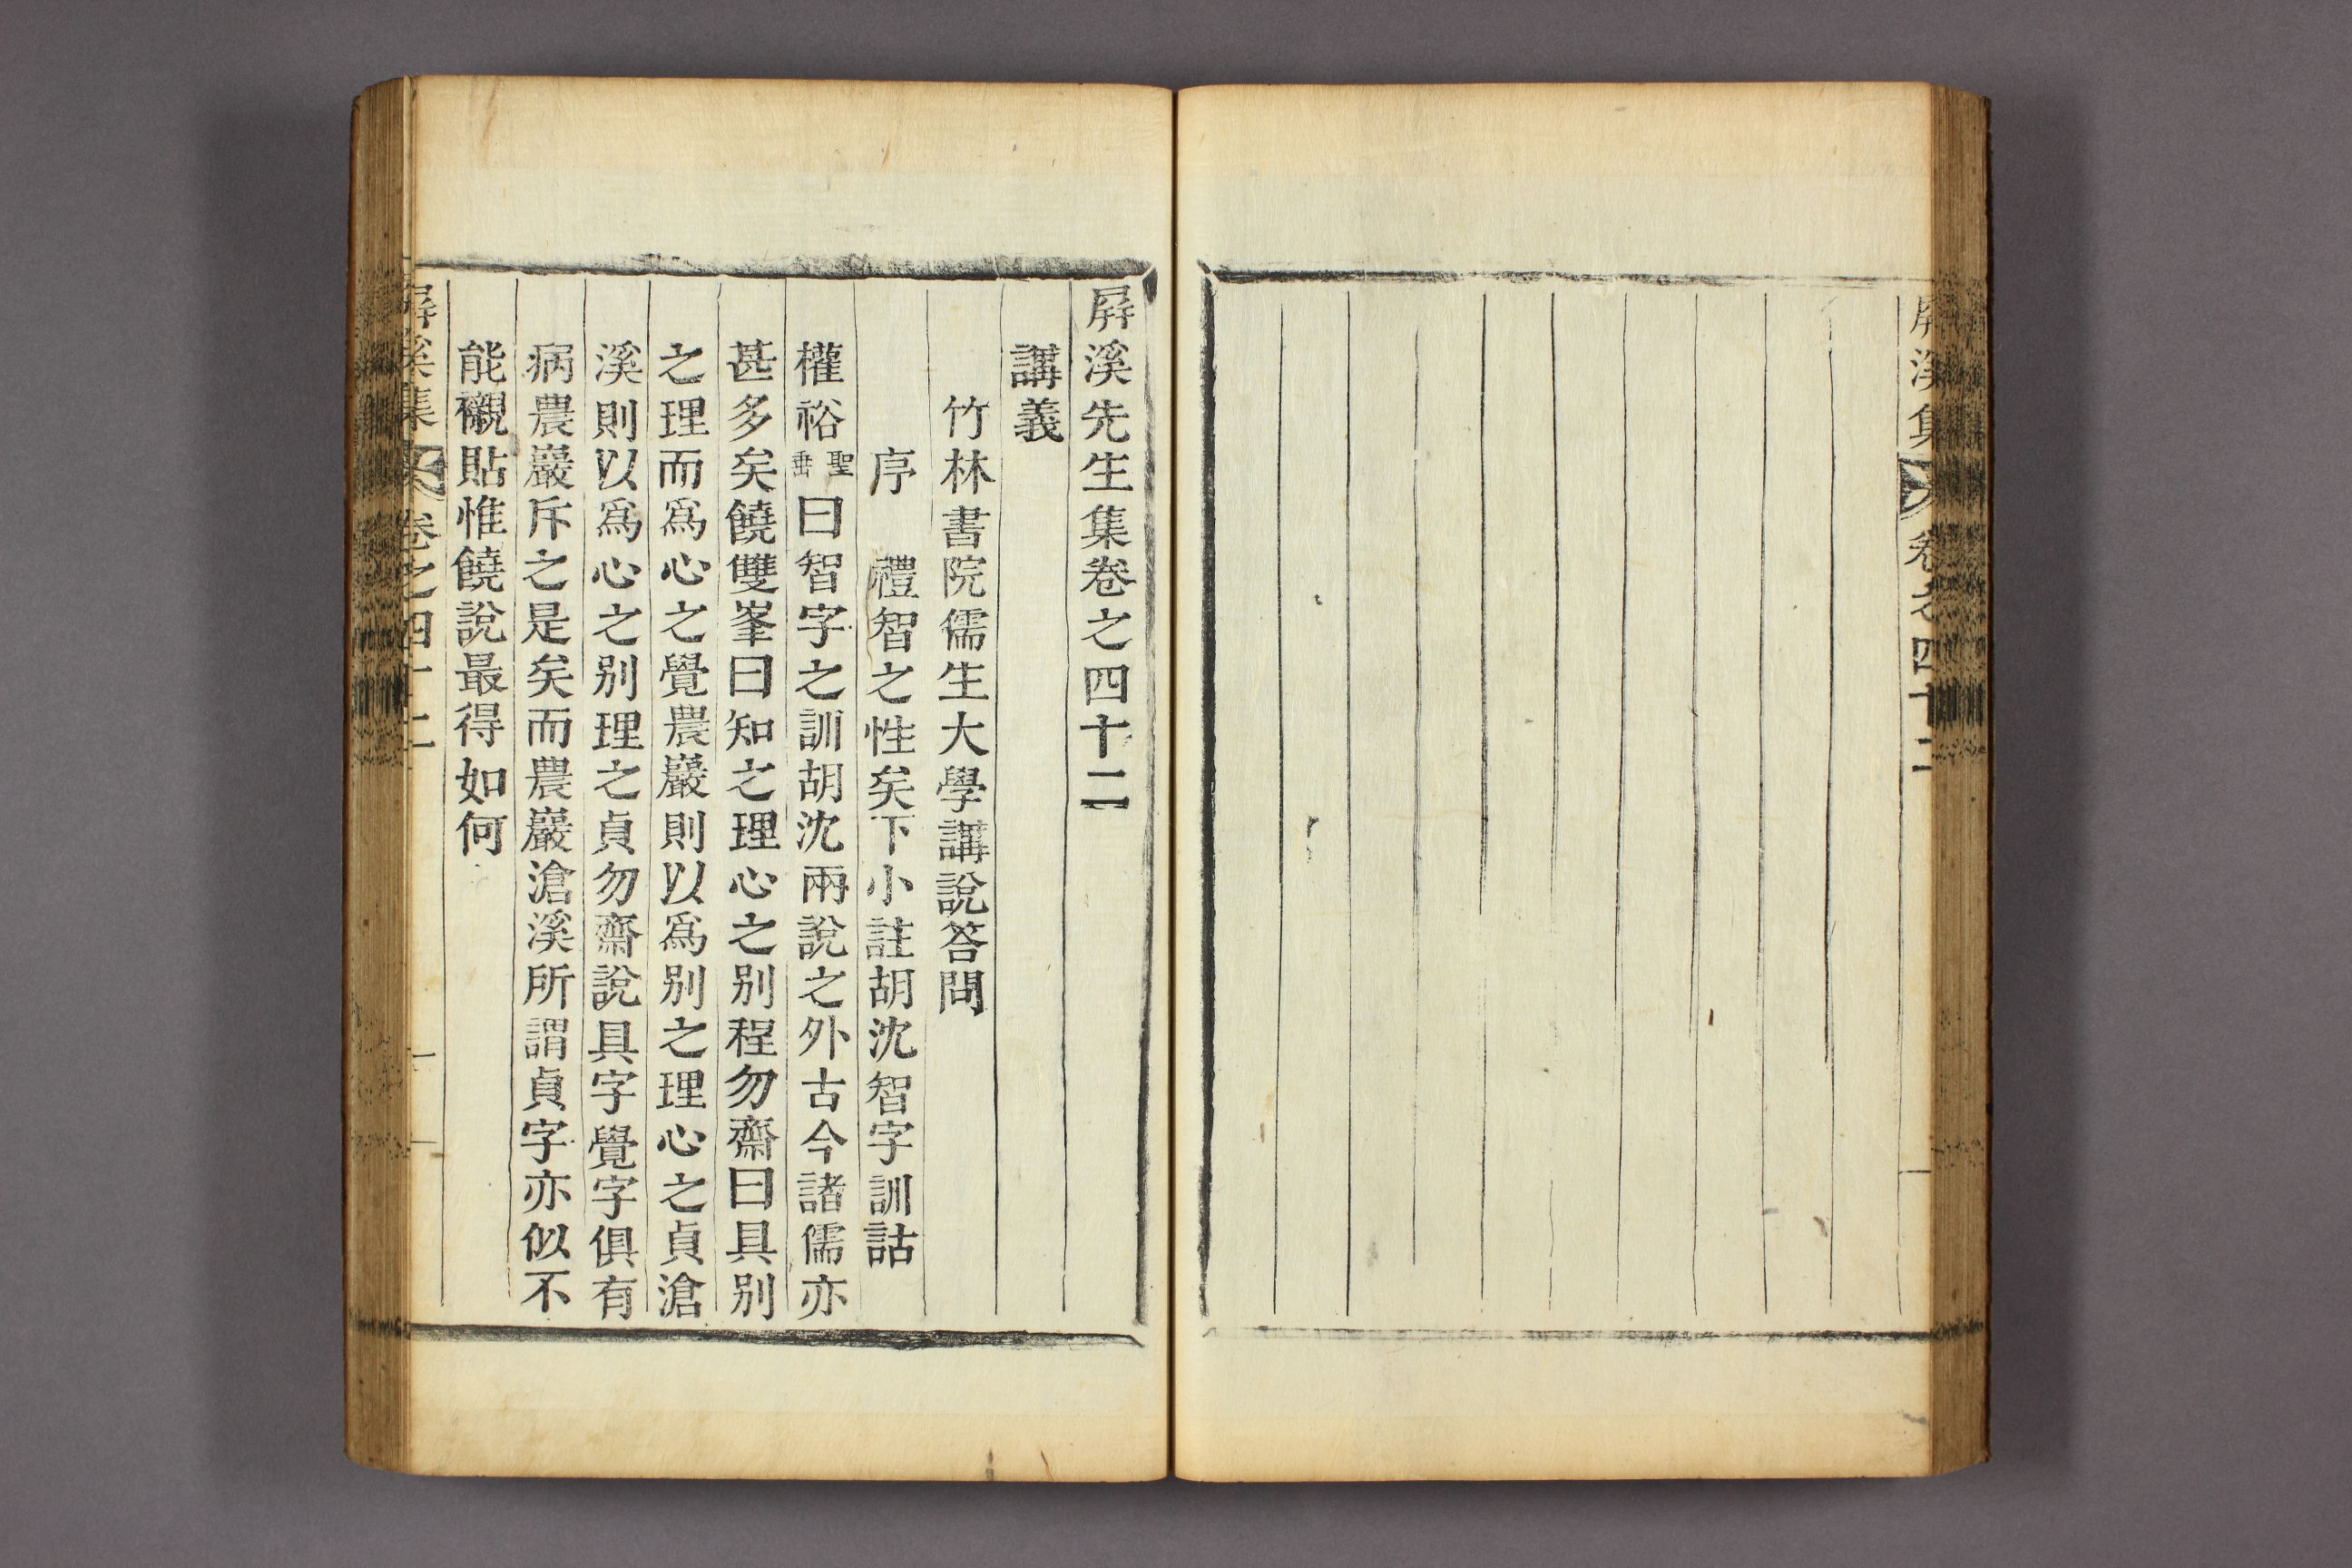 屛溪集 卷之四十二
屛溪先生集卷之四十二
講義
竹林書院儒生大學講說答問
序 禮智之性矣下小註胡沈智字訓詁
權裕聖岳曰智字之訓胡沈兩說之外古今諸儒亦
甚多矣饒雙峯曰知之理心之别程勿齋曰具别
之理而爲心之覺農巖則以爲别之理心之貞滄
溪則以爲心之别理之貞勿齋說具字覺字俱有
病農巖斥之是矣而農巖滄溪所謂貞字亦似不
能襯貼惟饒說最得如何
屛溪集 卷之四十二 一